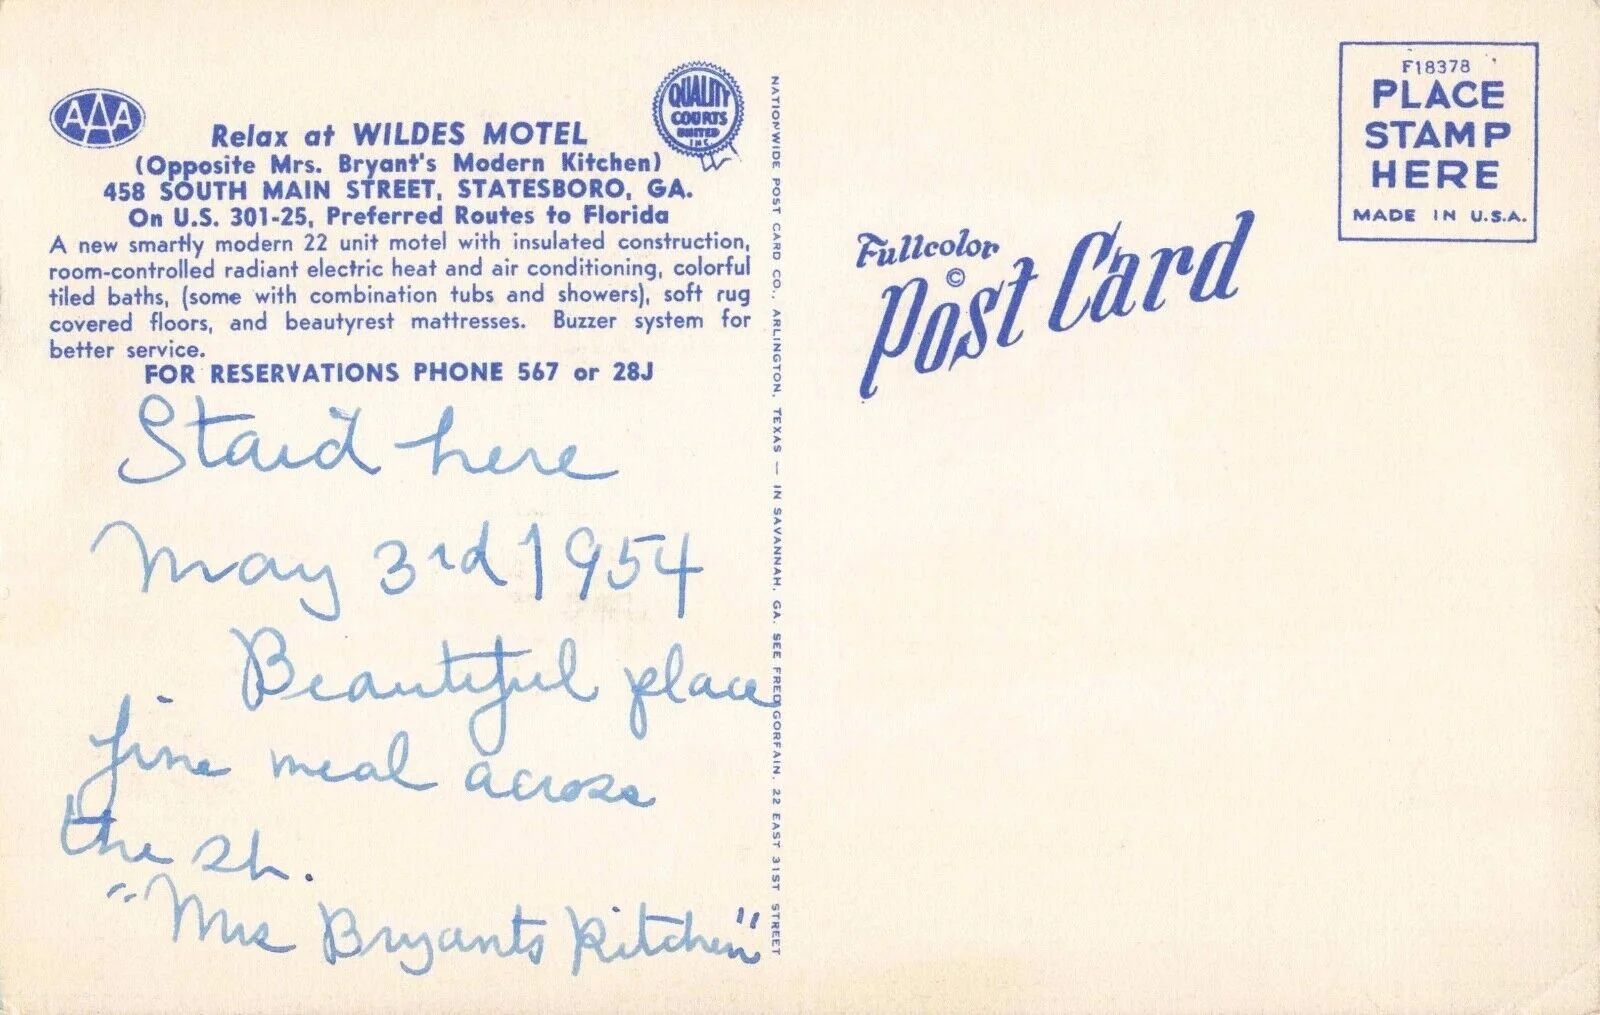 AAA
QUALITY
COURTS
UNITED
INC
Relax at WILDES MOTEL
(Opposite Mrs. Bryant's Modern Kitchen)
458 SOUTH MAIN STREET, STATESBORO, GA.
On U.S. 301-25, Preferred Routes to Florida
A new smartly modern 22 unit motel with insulated construction,
room-controlled radiant electric heat and air conditioning, colorful
tiled baths, (some with combination tubs and showers), soft rug
covered floors, and beautyrest mattresses. Buzzer system for
better service.
FOR RESERVATIONS PHONE 567 or 28J
Staid here
May 3rd 1954
Beautiful place
fine meal across
the st.
"Mrs Bryants Kitchen"
NATIONWIDE POST CARD CO., ARLINGTON, TEXAS — IN SAVANNAH, GA. SEE FRED GORFAIN, 22 EAST 31ST STREET
Fullcolor
©
Post Card
F18378
PLACE
STAMP
HERE
MADE IN U.S.A.